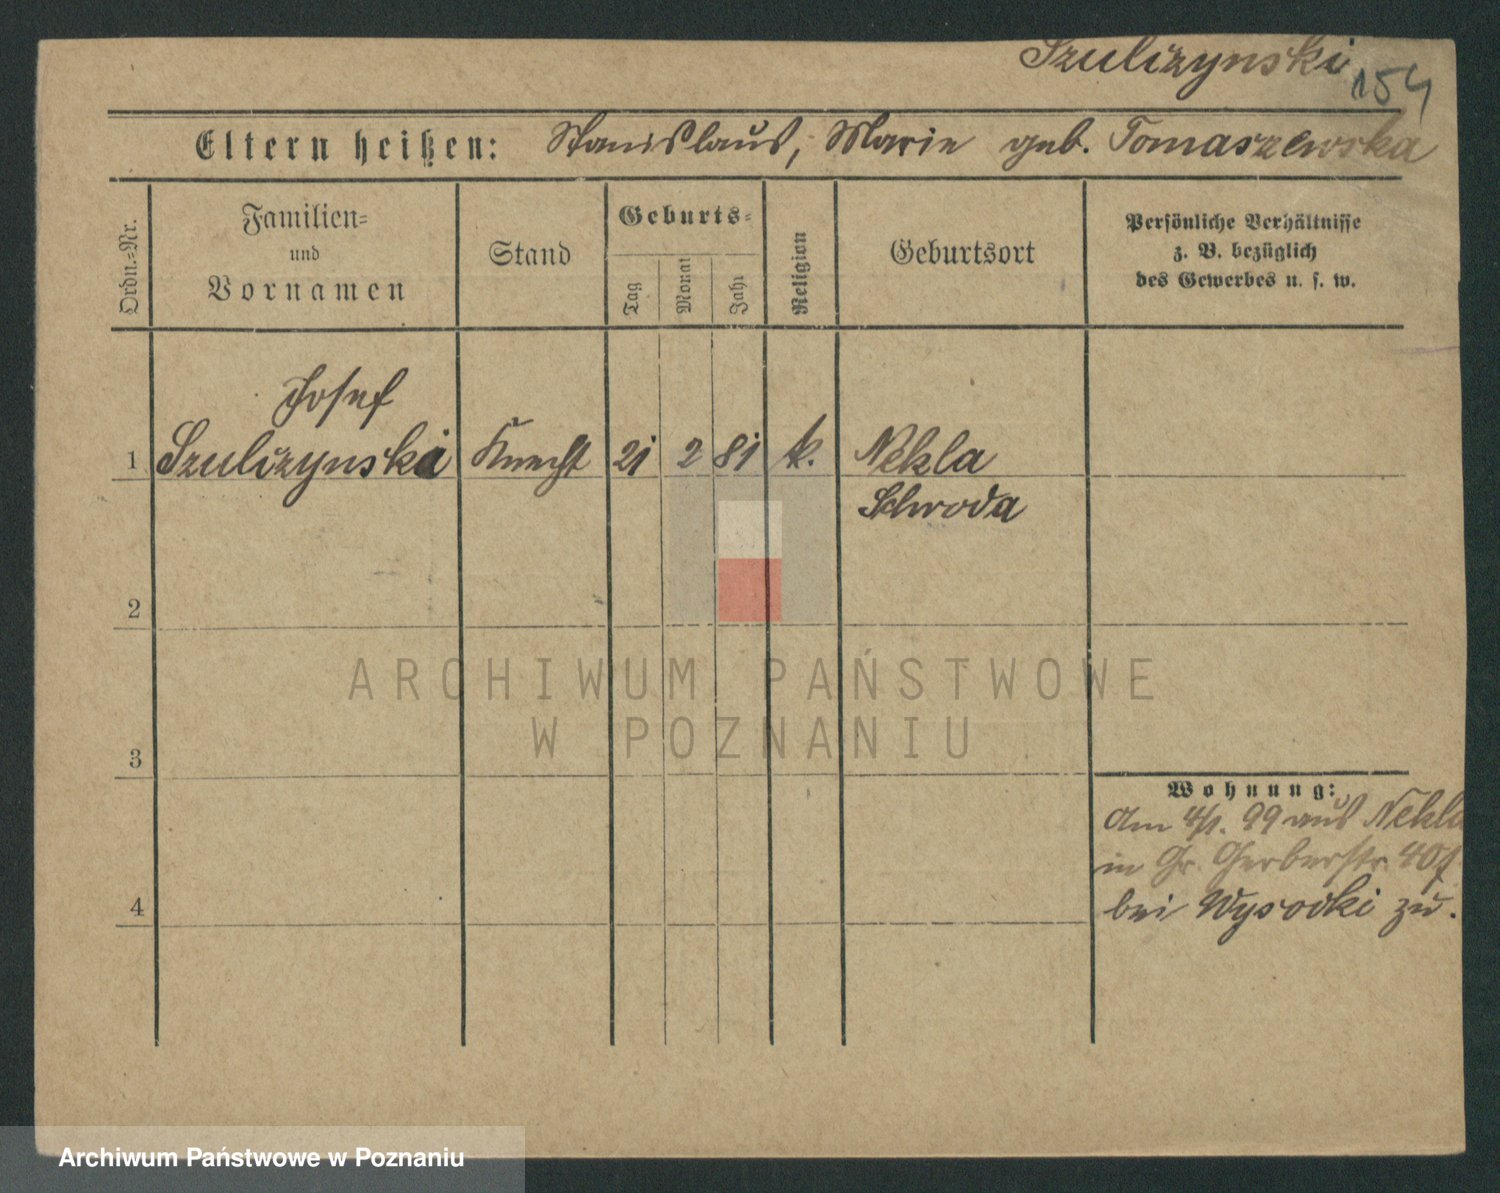 Szulizynski
154
Eltern heißen: Stanislaus, Marie geb. Tomaszewska
Ordn.-Nr.
Familien-
und
Vornamen
Stand
Geburts-
Tag
Monat
Jahr
Religion
Geburtsort
Persönliche Verhältnisse
z. B. bezüglich
des Gewerbes u. s. w.
Josef
1 Szulizynski Knecht 21 2 81 k. Nekla
Schroda
2
3
4
Wohnung:
Am 4/1. 99 aus Nekla
in Gr. Gerberstr. 40
bei Wysocki zu.
ARCHIWUM PAŃSTWOWE
W POZNANIU
Archiwum Państwowe w Poznaniu